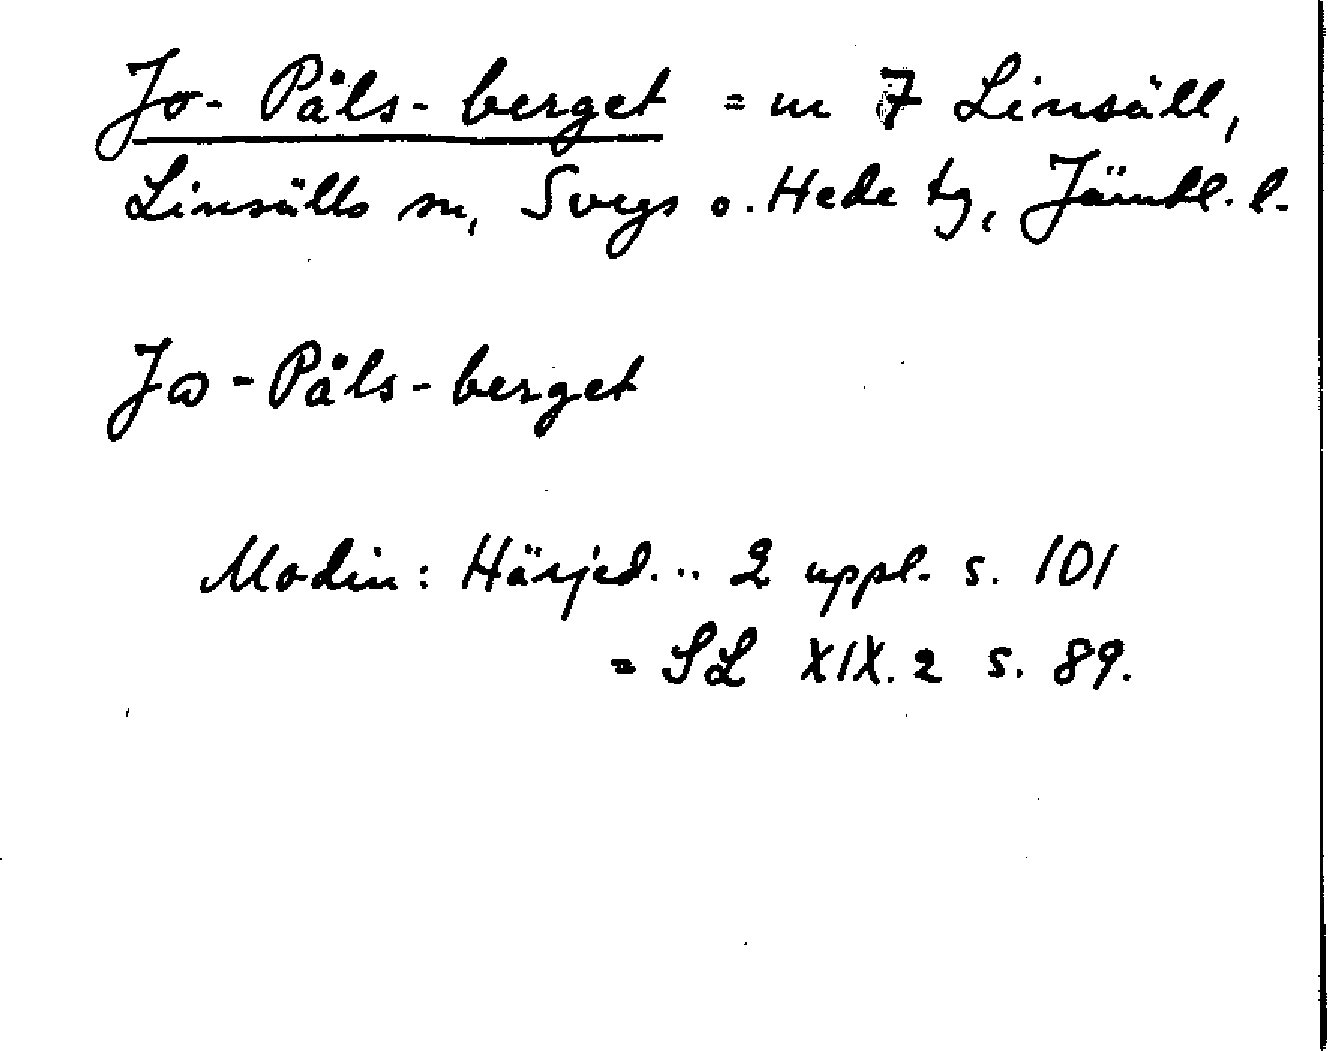 Jo-Påls-berget = m 7 Linsäll,
Linsälls sn, Svegs o. Hede tg, Jämtl. l.
Jo-Påls-berget
Modin: Härjed... 2 uppl. s. 101
= SL XIX. 2 s. 89.